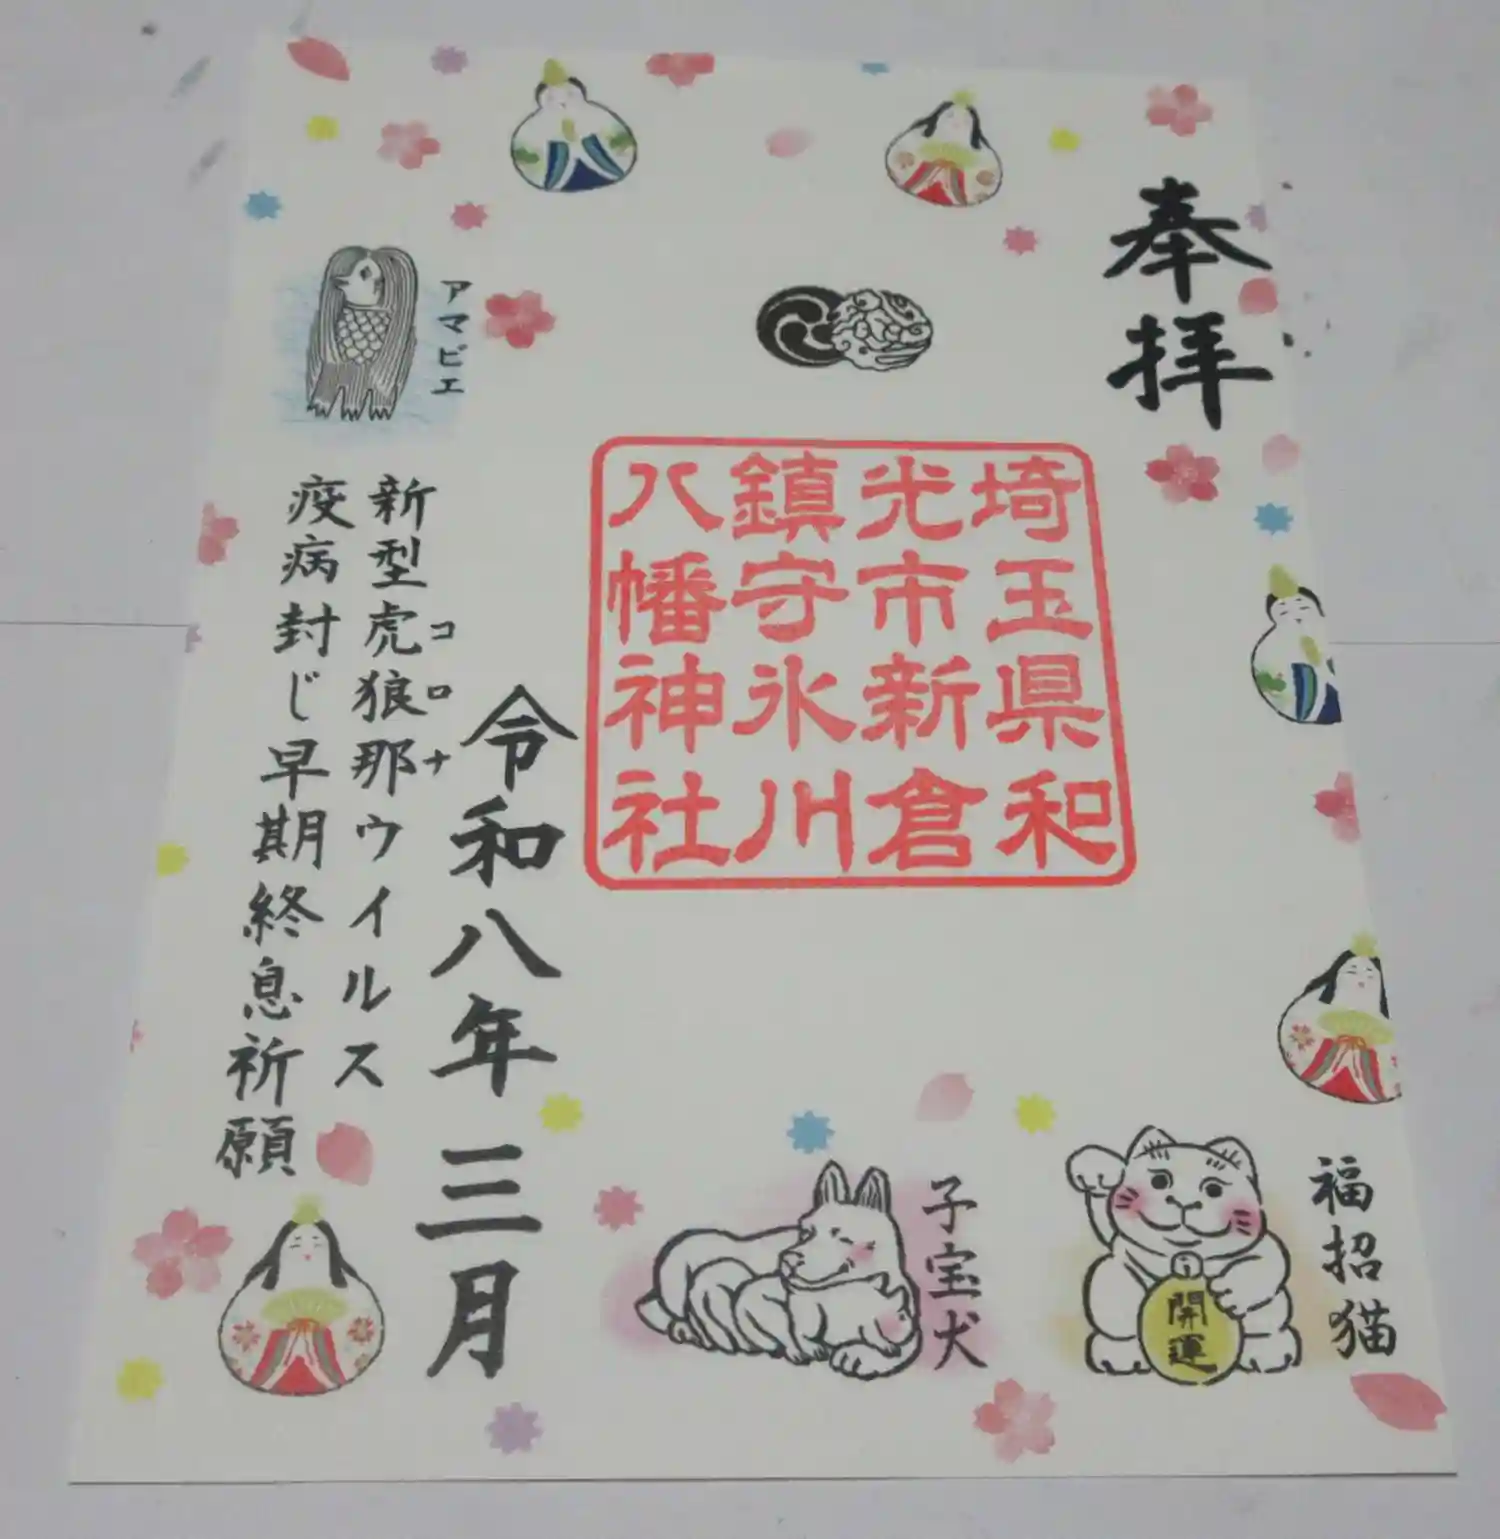 奉拝
埼玉県和
光市新倉
鎮守氷川
八幡神社
令和八年三月
アマビエ
新型虎狼那ウイルス
コロナ
疫病封じ早期終息祈願
福招猫
開運
子宝犬